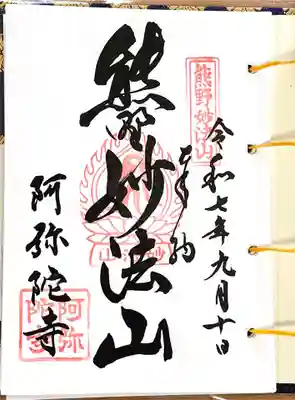 熊野妙法山
令和七年九月十日
奉納
熊野妙法山
阿弥陀寺
阿弥陀寺